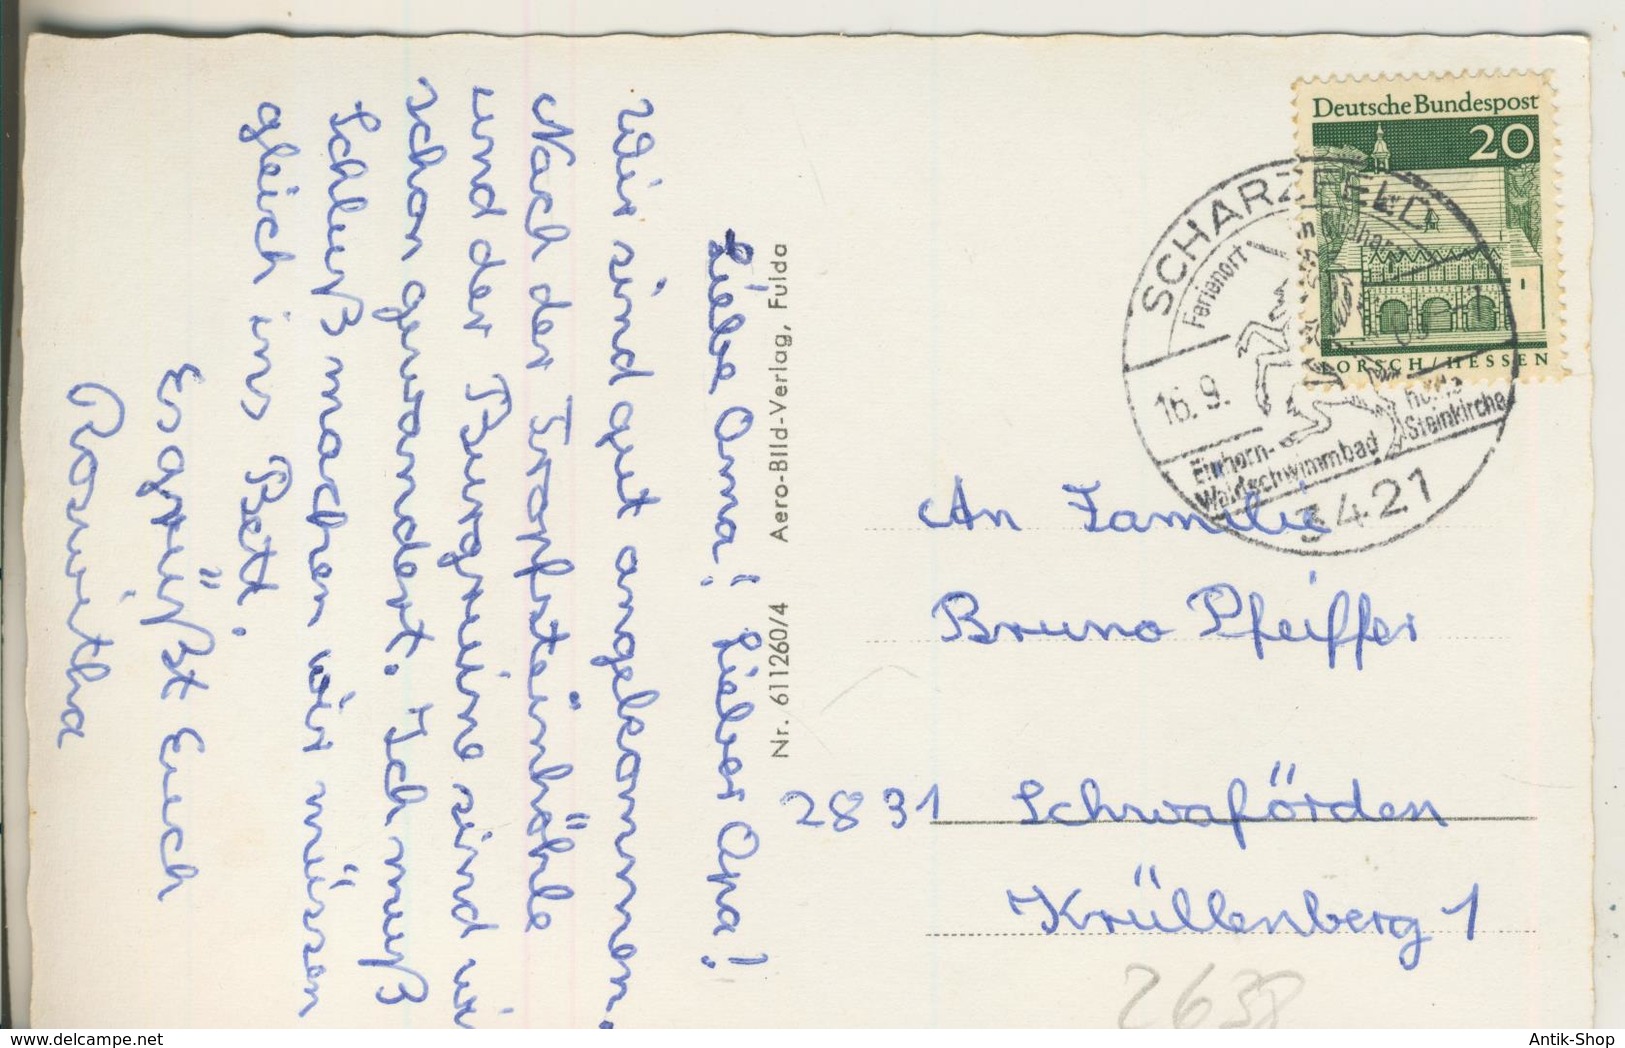 Liebe Oma! Lieber Opa!
Wir sind gut angekommen.
Nach der Tropfsteinhöhle
und der Burgruine sind wi
schon gewandert. Ich muß
Schluß machen wir müssen
gleich ins Bett.
Es grüßt Euch
Roswitha
Nr. 611260/4 Aero-Bild-Verlag, Fulda
Deutsche Bundespost
20
LORSCH/HESSEN
SCHARZFELD
Ferienort
16.9.
Einhorn-
Waldschwimmbad
Steinkirche
3421
An Familie
Bruno Pfeiffer
2831 Schwaförden
Krüllenberg 1
2638
Antik-Shop